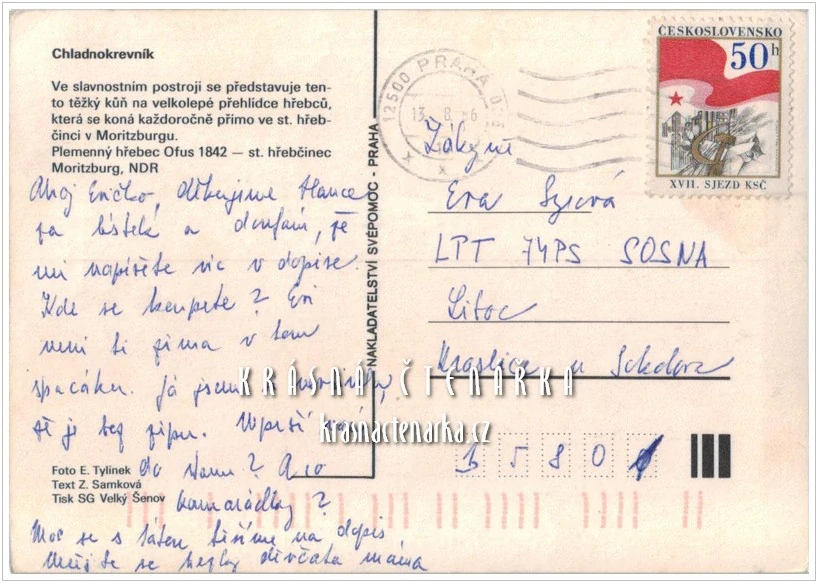 Chladnokrevník
Ve slavnostním postroji se představuje ten-
to těžký kůň na velkolepé přehlídce hřebců,
která se koná každoročně přímo ve st. hřeb-
činci v Moritzburgu.
Plemenný hřebec Ofus 1842 — st. hřebčinec
Moritzburg, NDR
Ahoj Evičko, děkujeme Hance
za lístek a doufám, že
mi napíšete víc v dopise.
Kde se koupete? Evi
není ti zima v tom
spacáku. Já jsem
že je bez zipu. Neprší vám
do stanu? A co
kamarádky?
Moc se s tátou těšíme na dopis
Mějte se hezky děvčata máma
Foto E. Tylínek
Text Z. Samková
Tisk SG Velký Šenov
NAKLADATELSTVÍ SVÉPOMOC - PRAHA
12500 PRAHA 025
13. 8. 86
ČESKOSLOVENSKO
50h
XVII. SJEZD KSČ
Žákyně
Eva
LPT 74PS SOSNA
Liboc
Kraslice u Sokolova
35801
KRÁSNÁ ČTENÁŘKA
krasnactenarka.cz